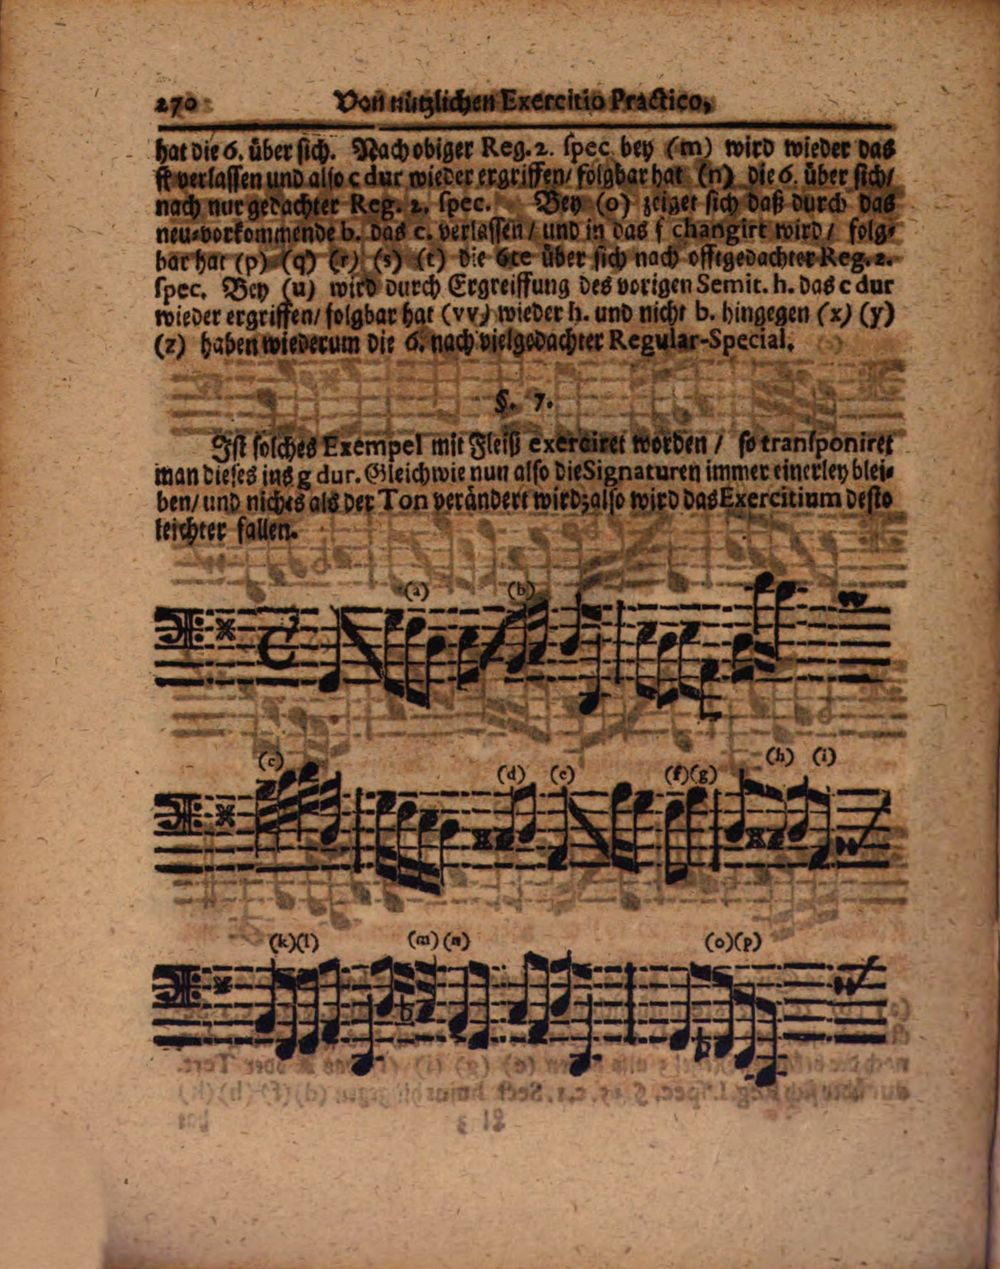 270 Von nützlichen Exercitio Practico,
hat die 6. über sich. Nach obiger Reg. 2. spec. bey (m) wird wieder das
fs verlassen und also c dur wieder ergriffen/ folgbar hat (n) die 6. über sich/
nach nur gedachter Reg. 2. spec. Bey (o) zeiget sich daß durch das
neu-vorkommende b. das c. verlassen/ und in das f changirt wird/ folg-
bar hat (p) (q) (r) (s) (t) die 6te über sich nach offtgedachter Reg. 2.
spec. Bey (u) wird durch Ergreiffung des vorigen Semit. h. das c dur
wieder ergriffen/ folgbar hat (vv) wieder h. und nicht b. hingegen (x) (y)
(z) haben wiederum die 6. nach vielgedachter Regular-Special.
§. 7.
Ist solches Exempel mit Fleiß exerciret worden / so transponiret
man dieses ins g dur. Gleichwie nun also die Signaturen immer einerley blei-
ben/ und nichts als der Ton verändert wird; also wird das Exercitium desto
leichter fallen.
(a) (b)
(c) (d) (e) (f) (g) (h) (i)
(k) (l) (m) (n) (o) (p)